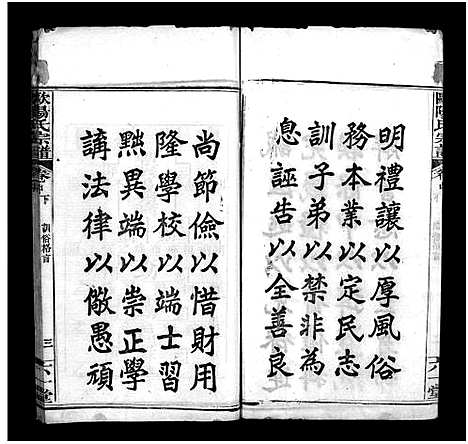 明禮讓以厚風俗
務本業以定民志
訓子弟以禁非為
息誣告以全善良
尚節儉以惜財用
隆學校以端士習
黜異端以崇正學
講法律以儆愚頑
歐陽氏宗譜
卷
下
訓俗格言
三
六一堂
歐陽氏宗譜
卷
六一堂